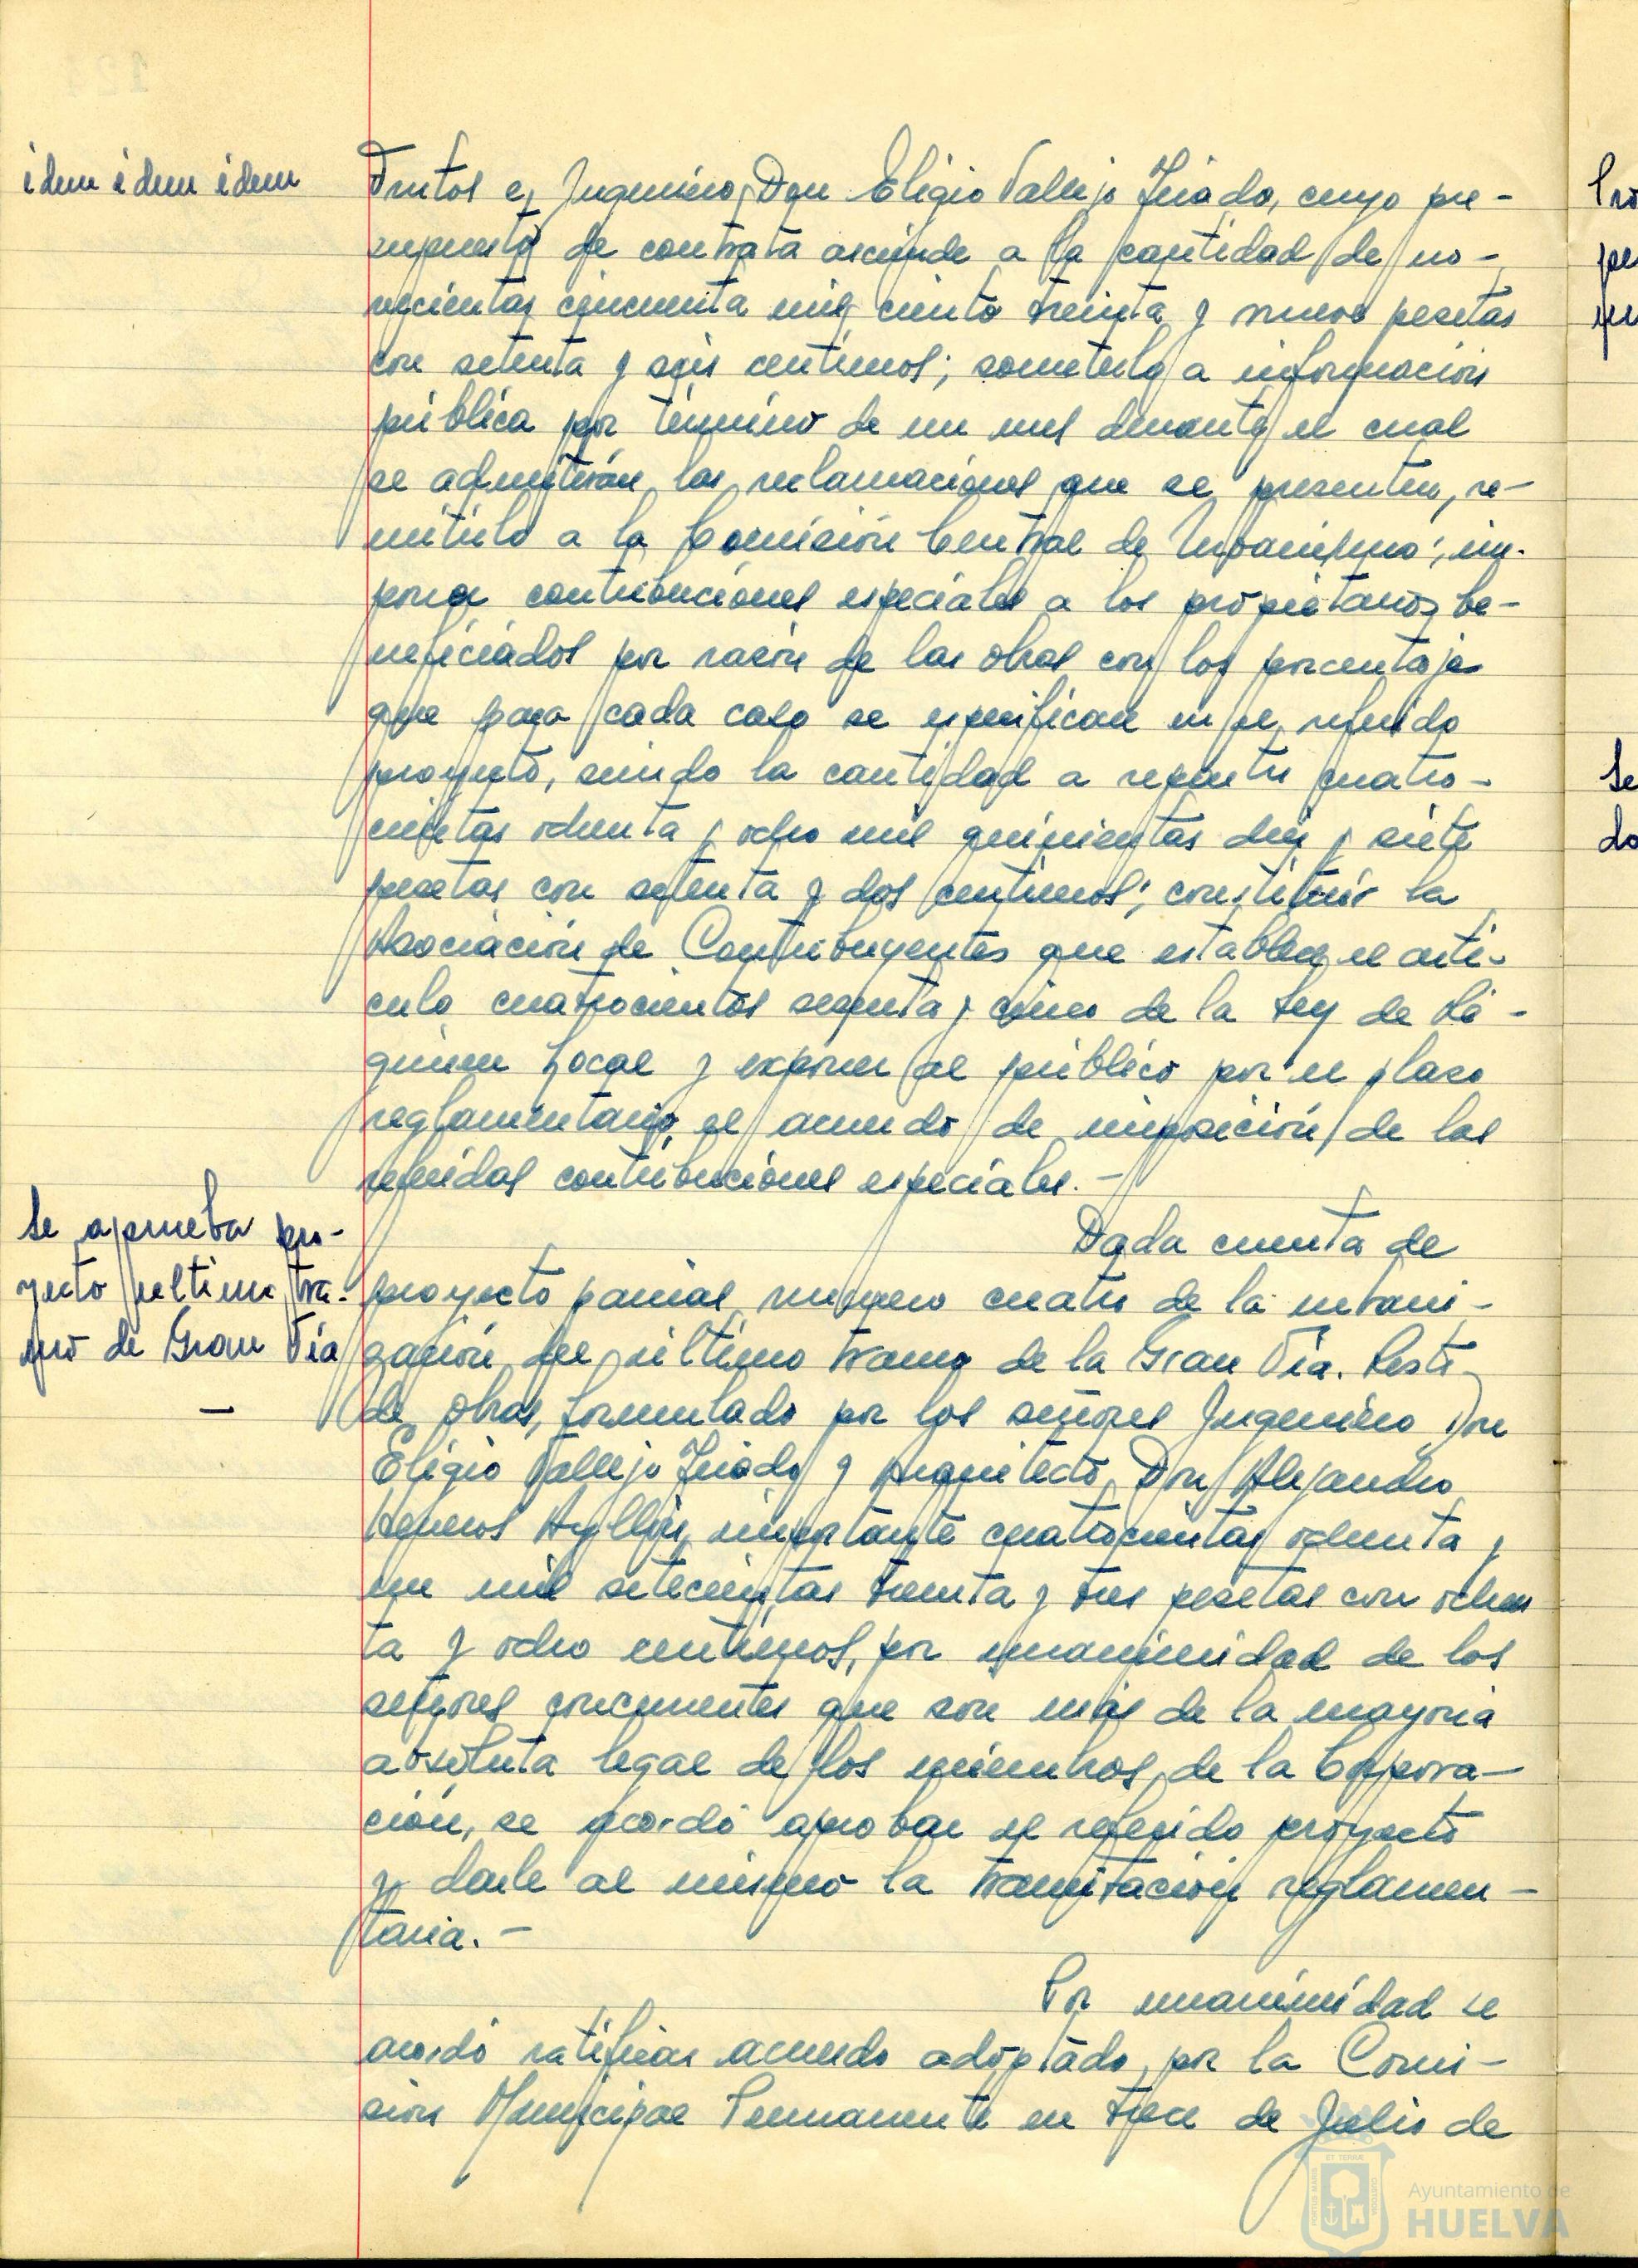 idem idem idem
Frutos e Ingeniero, Don Eligio Vallejo Triado, cuyo pre-
supuesto de contrata asciende a la cantidad de no-
vecientas cincuenta mil ciento treinta y nueve pesetas
con setenta y seis centimos; someterlo a información
pública por término de un mes durante el cual
se admitirán las reclamaciones que se presenten, re-
mitirlo a la Comisión Central de Urbanismo; im-
poner contribuciones especiales a los propietarios be-
neficiados por razón de las obras con los porcentajes
que para cada caso se especifican en el referido
proyecto, siendo la cantidad a repartir cuatro-
cientas ochenta y ocho mil quinientas diez y siete
pesetas con setenta y dos centimos; constituir la
Asociación de Contribuyentes que establece el artí-
culo cuatrocientos sesenta y cinco de la Ley de Ré-
gimen Local y exponer al público por el plazo
reglamentario, el acuerdo de imposición de las
referidas contribuciones especiales. —
Se aprueba pro-
yecto último tra-
mo de Gran Vía
—
Dada cuenta de
proyecto parcial número cuatro de la urbani-
zación del último tramo de la Gran Vía. Resto
de obras, formulado por los señores Ingeniero Don
Eligio Vallejo Triado y Arquitecto Don Alejandro
Herreros Ayllón, importante cuatrocientas ochenta y
un mil setecientas treinta y tres pesetas con ochen
ta y ocho centimos, por unanimidad de los
señores concurrentes que son más de la mayoria
absoluta legal de los miembros de la Corpora-
ción, se acordó aprobar el referido proyecto
y darle al mismo la tramitación reglamen-
taria. —
Por unanimidad se
acordó ratificar acuerdo adoptado, por la Comi-
sión Municipal Permanente en trece de Julio de
Pro
Se
do
Ayuntamiento de
HUELVA